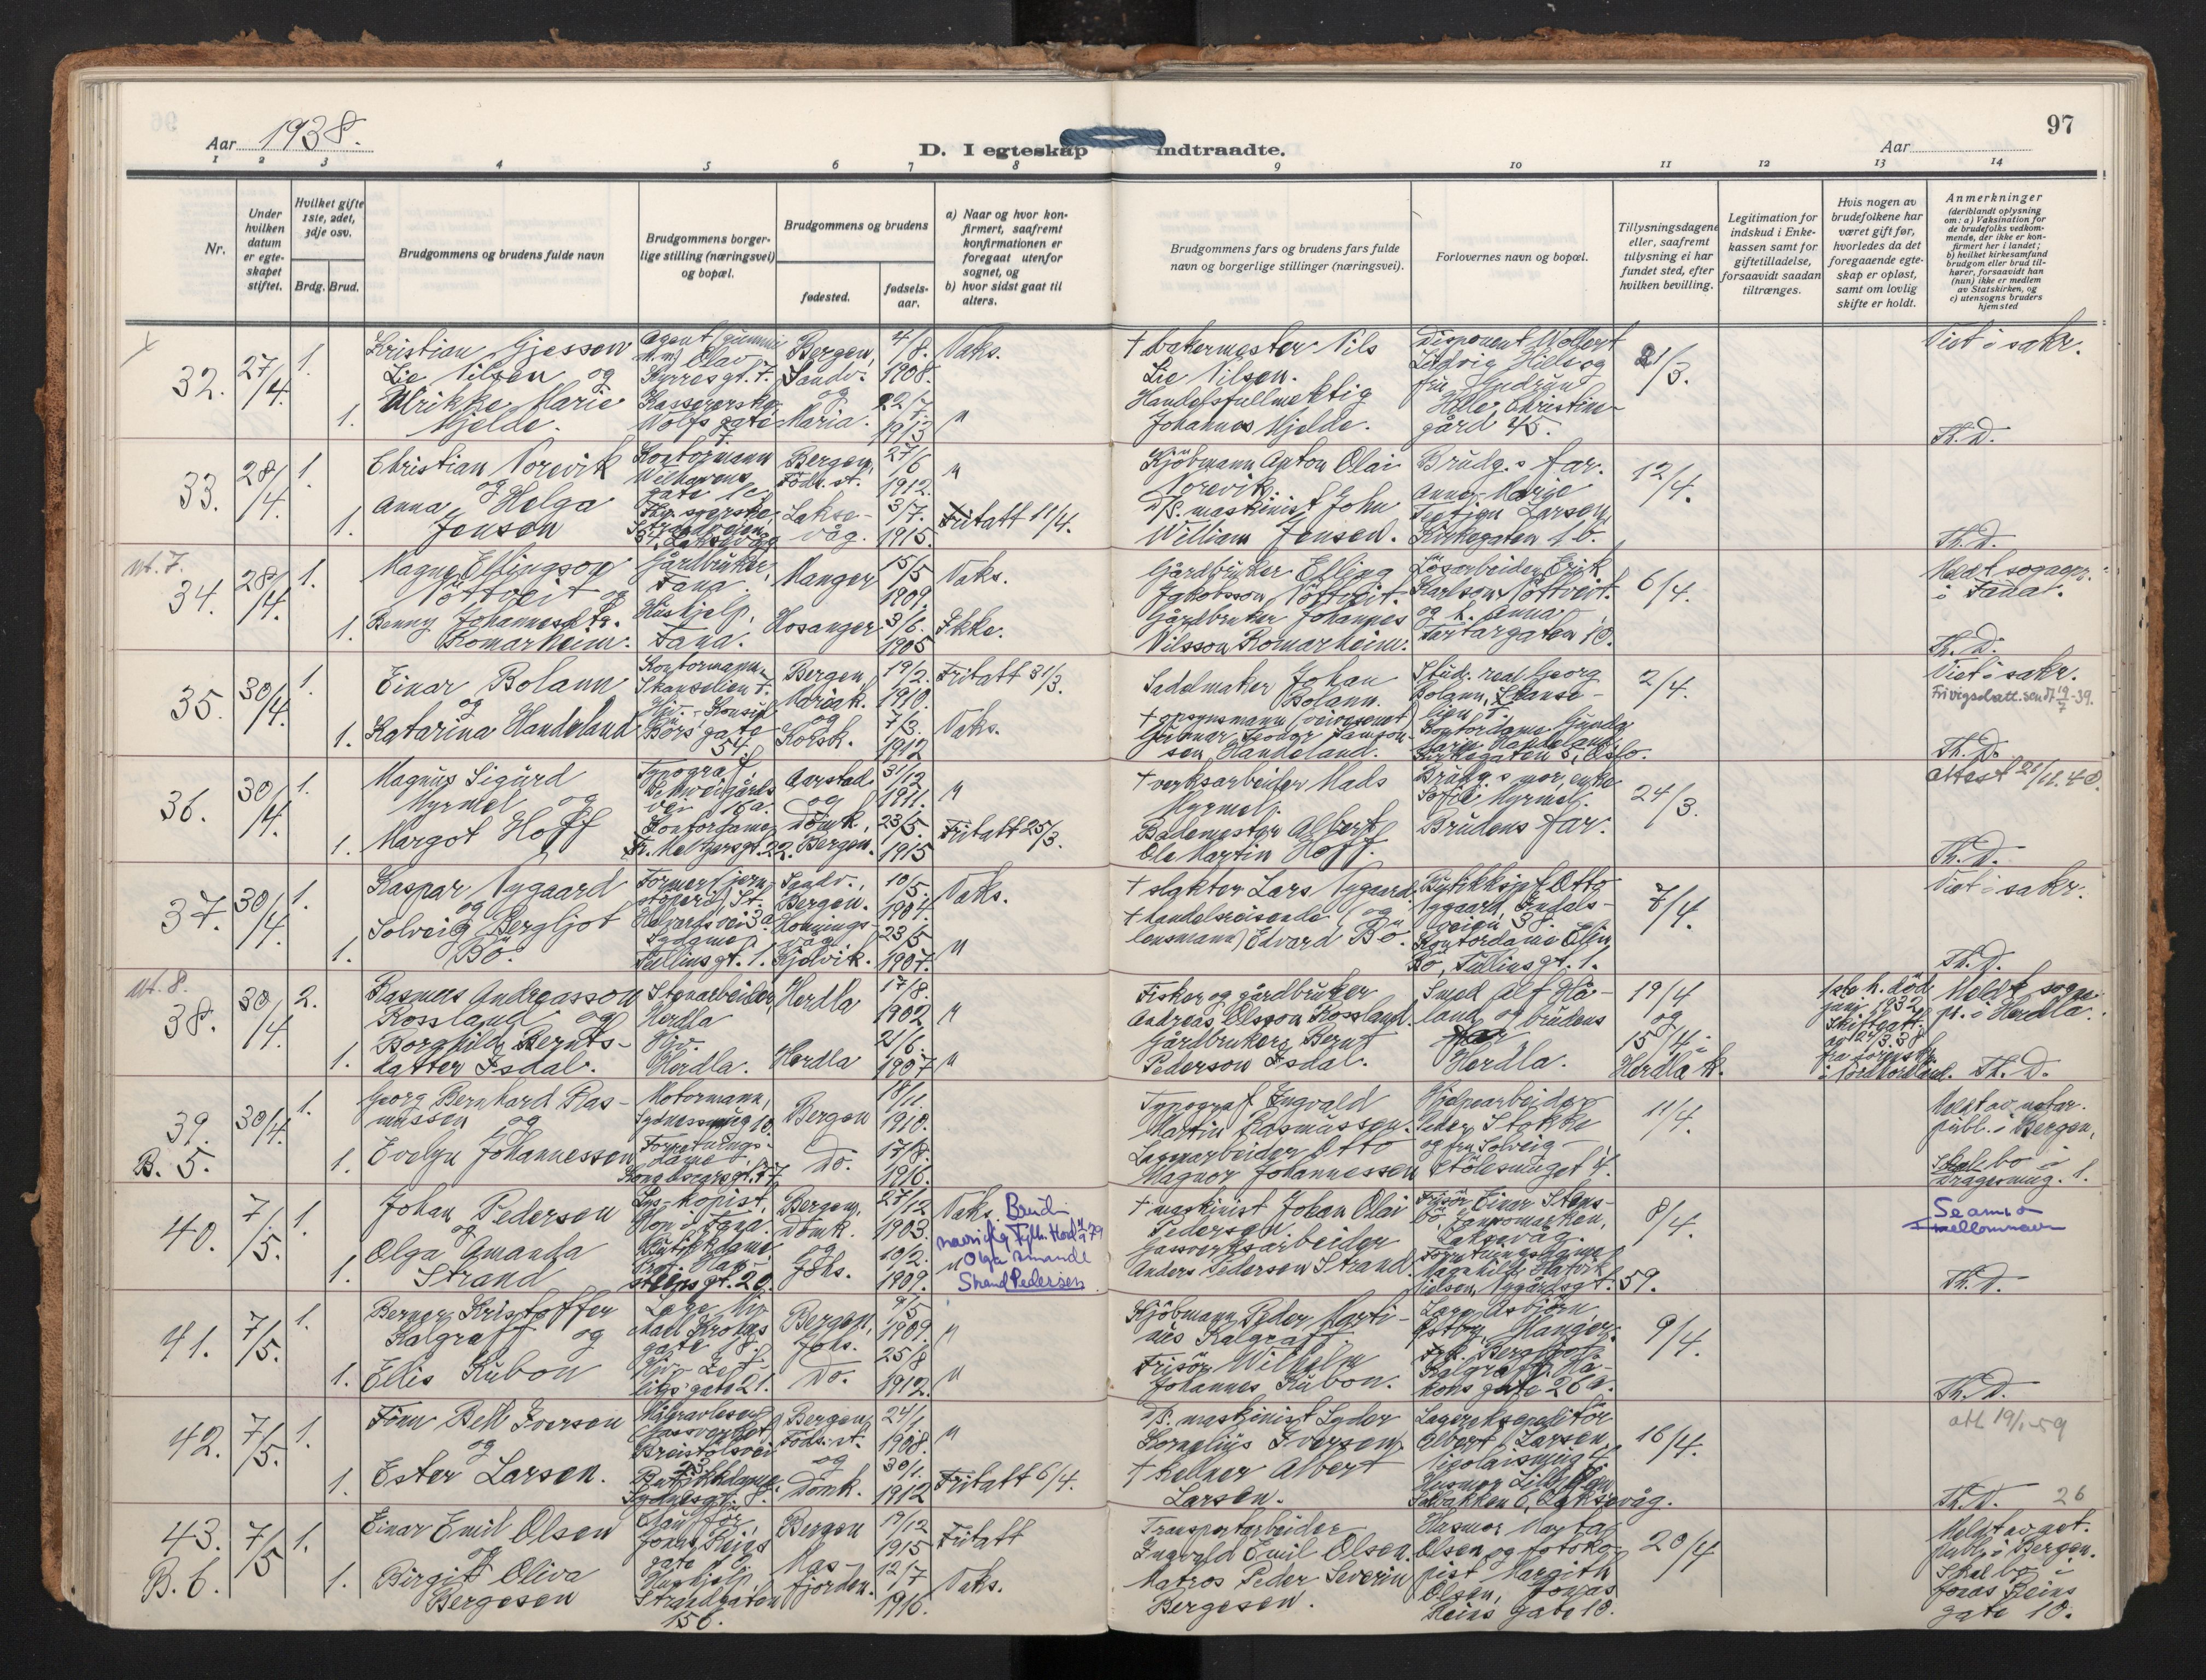 97
Aar 1938.
D. I egteskap indtraadte.
Aar
1 2 3 4 5 6 7 8 9 10 11 12 13 14
Nr.
Under hvilken datum er egteskapet stiftet.
Hvilket gifte 1ste, 2det, 3dje osv.
Brdg. Brud.
Brudgommens og brudens fulde navn
Brudgommens borgerlige stilling (næringsvei) og bopæl.
Brudgommens og brudens
fødested.
fødselsaar.
a) Naar og hvor konfirmert, saafremt konfirmationen er foregaat utenfor sognet, og
b) hvor sidst gaat til alters.
Brudgommens fars og brudens fars fulde navn og borgerlige stillinger (næringsvei).
Forlovernes navn og bopæl.
Tillysningsdagene eller, saafremt tillysning ei har fundet sted, efter hvilken bevilling.
Legitimation for indskud i Enkekassen samt for giftetilladelse, forsaavidt saadan tiltrænges.
Hvis nogen av brudefolkene har været gift før, hvorledes da det foregaaende egteskap er opløst, samt om lovlig skifte er holdt.
Anmerkninger
(deriblandt oplysning om: a) Vaksination for de brudefolks vedkommende, der ikke er konfirmert her i landet; b) hvilket kirkesamfund brudgom eller brud tilhører, forsaavidt han (hun) ikke er medlem av Statskirken, og c) utensogns bruders hjemsted
32. 27/4. 1. Kristian Gjessen
Lie Nilsen og
1. Ulrikke Marie
Hjelde.
Agent (gummi
m.m) Olav
Kyrresgt. 7.
Kassererske,
Wolfs gate
Bergen,
Sandv.
og
Maria.
4/8.
1908.
22/7.
1913
Vaks.
"
† bakermester Nils
Lie Nilsen.
Handelsfullmektig
Johannes Hjelde.
Disponent Wollert
Ludvig Hille og
fru Gudrun
Hille, Christine-
gård 45.
21/3.
Viet i sakr.
Th. D.
33. 28/4. 1. Christian Norevik
og
1. Anna Helga
Jensen
Kontormann
Welhavens
gate 1c.
Strandveien
Bergen,
Föds. st.
Lakse-
våg.
27/6
1912.
3/7.
1915.
"
Fritatt 11/4.
Kjöbmann Anton Olai
Norevik.
D/S. maskinist John
William Jensen.
Brudg.s far.
Anna Marie
Larsen,
Kirkegaten 1 b.
12/4.
Th. D.
ut. 7.
34. 28/4. 1. Magne Ellingson
Nöttveit og
1. Benny Johannesdtr.
Romarheim.
Gårdbruker,
Fana.
Hushjelp,
Fana.
Manger
Hosanger
15/5
1909.
3/6.
1905
Vaks.
Ikke.
Gårdbruker Elling
Jakobsson Nöttveit.
Gårdbruker Johannes
Nilsson Romarheim.
Lösarbeider Erik
Karlson Nöttveit
og h. Anna,
Tartargaten 10.
6/4.
Meldt sognepr.
i Fana.
Th. D.
35. 30/4. 1. Einar Bolann
og
1. Katarina Handeland
Kontormann,
Skanselien 7.
Hjv.- Konsul
Börs gate
54.
Bergen,
Mariak.
og
Korsk.
19/2.
1910.
7/3.
1912
Fritatt 31/3.
Vaks.
Sadelmaker Johan
Bolann.
† opsynsmann (veivesenet)
Gunnar Teodor Samson-
sen Handeland.
Stud. real Georg
Bolann, Skanse-
lien 7.
Kontordame Gunda
Marie Handeland,
Kirkegaten 5, Oslo.
2/4.
Viet i sakr.
Fri vigselsatt. sendt 19/7-39.
Th. D.
36. 30/4. 1. Magnus Sigurd
Myrmel og
1. Margot Hoff
Typograf,
vei 16a.
Kontordame,
Fr. Meltzersgt. 22.
Aarstad
og
Domk.,
Bergen.
31/12
1911.
23/5.
1915
"
Fritatt 25/3.
† verksarbeider Mads
Myrmel.
Bademester Albert
Ole Martin Hoff.
Brudg.s mor, enke
Sofie Myrmel.
Brudens far.
24/3.
attest 21/11.40.
Th. D.
37. 30/4. 1. Kaspar Nygaard
og
1. Solveig Bergljot
Bö.
Former (jern-
støperi) St.
Halvards vei 3a
Sydame,
Tullins gt. 1.
Sandv.,
Bergen.
Honnings-
våg,
Kjelvik.
10/5.
1904.
23/5
1907.
Vaks.
"
† slakter Lars Nygaard.
† handelsreisende (og
lensmann) Edvard Bö.
Butikksjef Otto
Nygaard, Indals-
veien 38.
Kontordame Elin
Bö, Tullins gt. 1.
7/4.
Viet i sakr.
Th. D.
ut. 8.
38. 30/4. 2. Rasmus Andreasson
Rossland og
1. Borghild Bernts-
datter Isdal.
Stenarbeider,
Herdla
Hjv.
Herdla.
Herdla
Herdla
17/8.
1902
21/6.
1907
"
"
Fisker og gårdbruker
Andreas Olsson Rossland.
Gårdbruker Bernt
Pederson Isdal.
Smed Alf Hå-
land og brudens
far
Herdla.
19/4
og
15/4 i
Herdla k.
1ste h. död
juni 1932,
Skifteatt.
av 2/3.38
fra sorenskr.
i Nordhordland.
Meldt sogne-
pr. i Herdla.
Th. D.
39.
B. 5.
30/4. 1. Georg Bernhard Ras-
mussen og
1. Evelyn Johannessen
Motormann,
Sydnessmug 10.
Forretnings-
dame,
Kong Oscarsgt. 77.
Bergen
Do.
18/11.
1910.
17/8.
1916.
Typograf Ingvald
Martin Rasmussen.
Lagerarbeider Otto
Magnor Johannessen
Hjelpearbeider
Peder Stokke
og fru Solveig
Stölesmuget 4.
11/4.
Meldt av notar.
publ. i Bergen,
Skal bo i
Dragesmug. 1.
40. 7/5. 1. Johan Pedersen
og
1. Olga Amanda
Strand
Lys-kopist,
Hop i Fana.
Butikkdame
stens gt. 20.
Bergen,
Domk.
og
Johs.
27/12.
1903.
10/2.
1909.
Vaks.
"
Bruden
navnidg. Fylkm. Hord. 79
Olga Amanda
Strand Pedersen
† maskinist Johan Olai
Pedersen.
Gassverksarbeider
Anders Pedersen Strand.
Frisör Einar Stens-
bö, Damsmarken,
Laksevåg.
Forretningsdame
Magnhild Hatvik
Nielsen, Nygårdsgt. 59.
8/4.
mellomnavn
Th. D.
41. 7/5. 1. Berner Kristoffer
Kalgraff og
1. Ellis Kubon
gate 18.
Hjv. Zet-
litz' gate 21.
Bergen,
Johs.
Do.
9/5
1909.
25/8
1912.
"
"
Kjöbmann Peder Marti-
nus Kalgraff.
Frisör Wilhelm
Johannes Kubon.
Læge Asbjörn
Östby, Manger.
Kalgraff, Hå-
kons gate 26a.
9/4.
Th. D.
42. 7/5. 1. Finn Bell Iversen
og
1. Ester Larsen.
Måleravleser
Gassverket,
Breistölsvei
Butikkdame
Sydnesgt. 8.
Bergen,
Föds. st.
og
Domk.
24/1.
1908.
30/1.
1912
"
Fritatt 6/4.
D/S. maskinist Syder
Kornelius Iversen.
† kellner Albert
Larsen.
Lagerekspeditör
Albert Larsen,
Nicolaismug 4.
Husmor
Laksevåg.
16/4.
att. 19/1-59
Th. D.
26
43.
B. 6.
7/5 1. Einar Emil Olsen
og
1. Birgit Oliva
Bergesen
Jonas Reins
gate 10.
Hushjelp,
Strandgaten
156.
Bergen
Mas-
fjorden.
19/12
1915
12/7
1916.
Fritatt
Vaks.
Transportarbeider
Ingvald Emil Olsen.
Matros Peder Severin
Bergesen.
Husmor Marta
Olsen og fotoko-
pist Margith
Olsen, Jonas
Reins gate 10.
20/4
Meldt av not.
publ. i Bergen.
Skal bo i
Jonas Reins
gate 10.